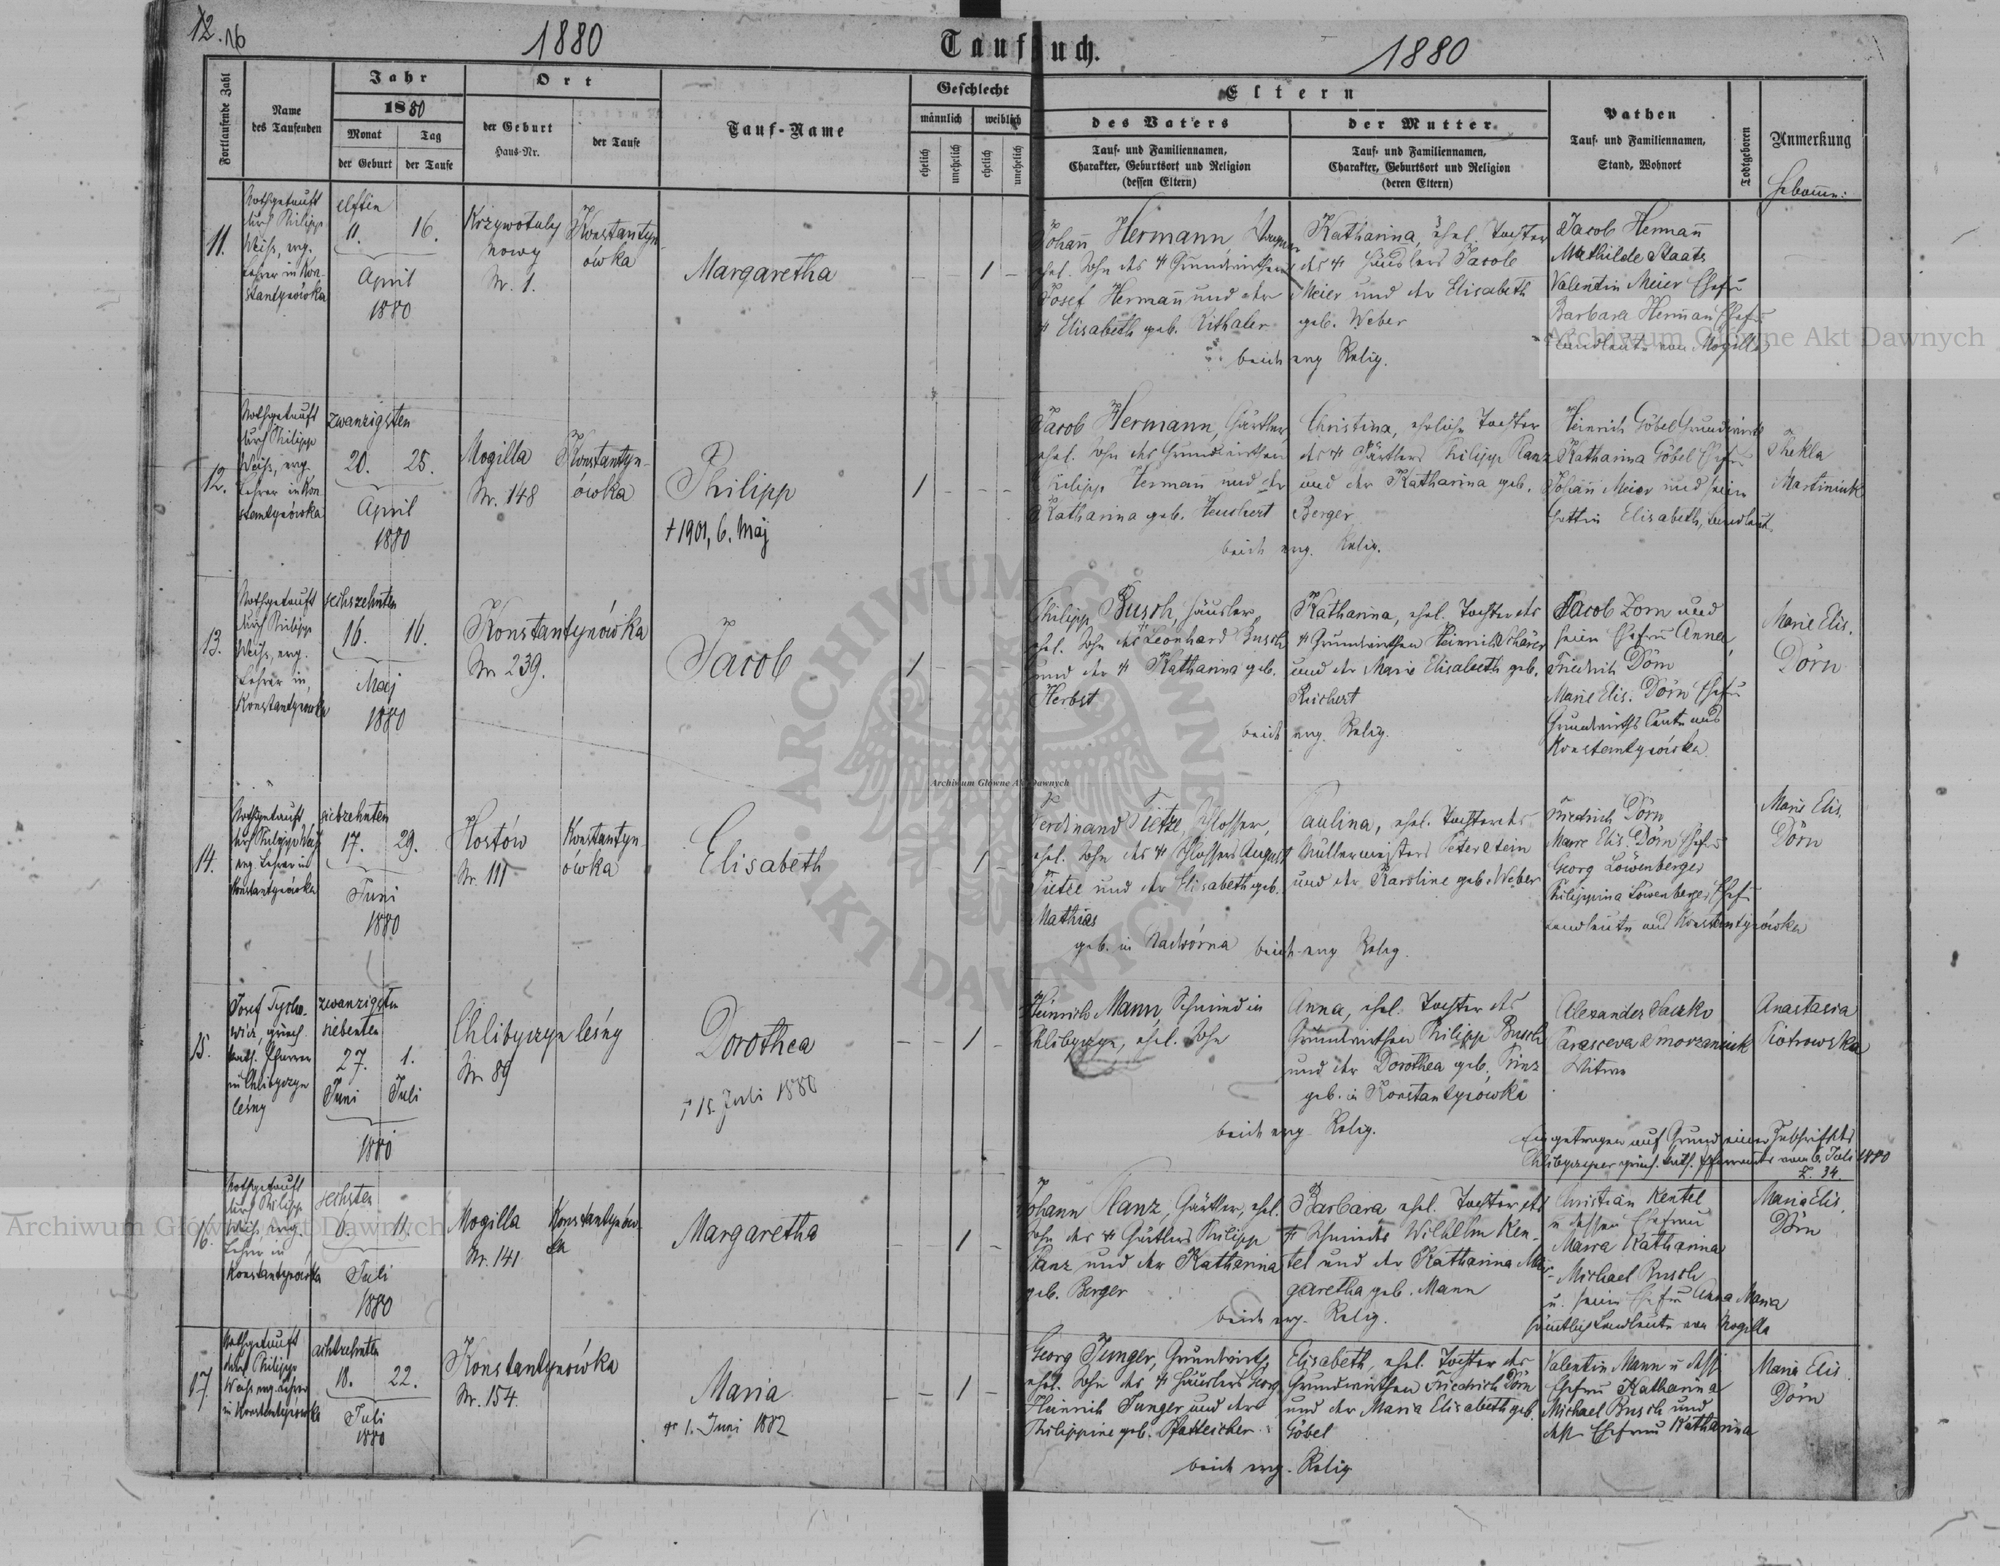 12.
16
1880
Taufbuch.
1880
Fortlaufende Zahl
Name
des Taufenden
Jahr
1880
Monat
Tag
der Geburt
der Taufe
Ort
der Geburt
Haus-Nr.
der Taufe
Tauf-Name
Geschlecht
männlich
weiblich
ehelich
unehelich
ehelich
unehelich
Eltern
des Vaters
Tauf- und Familiennamen,
Charakter, Geburtsort und Religion
(dessen Eltern)
der Mutter
Tauf- und Familiennamen,
Charakter, Geburtsort und Religion
(deren Eltern)
Pathen
Tauf- und Familiennamen,
Stand, Wohnort
Todtgeboren
Anmerkung
Hebamme:
11.
Nothgetauft
durch Philipp
Weihs, evg.
Lehrer in Kon-
stantynówka
elften
11. 16.
April
1880
Krzywotuły
nowy
Nr. 1.
Konstantyn-
ówka
Margaretha
1
Johañ Hermann
ehel. Sohn des ✝ Grundwirthen
Josef Hermañ und der
✝ Elisabeth geb. Rithaler
Katharina, ehel. Tochter
des ✝ Häuslers Jacob
Meier und der Elisabeth
geb. Weber
beide evg. Relig.
Jacob Hermañ
Mathilde Staats
Valentin Meier Ehefr
Barbara Hermañ Ehefr
Landleute von Mogilla
12.
Nothgetauft
durch Philipp
Weihs, evg.
Lehrer in Kon
stantynówka
zwanzigsten
20. 25.
April
1880
Mogilla
Nr. 148
Konstantyn-
ówka
Philipp
+ 1901, 6. Maj
1
Jacob Hermann, Gärtler,
ehel. Sohn des Grundwirthen
Philipp Herman und der
Katharina geb. Heuchert
Christina, eheliche Tochter
des ✝ Gärtlers Philipp Ranz
und der Katharina geb.
Berger
beide evg. Relig.
Heinrich Göbel Grundwirth
Katharina Göbel Ehefr
Johañ Meier und seine
Gattin Elisabeth, Landleut
Thekla
Martiniuk
13.
Nothgetauft
durch Philipp
Weihs, evg.
Lehrer in
Konstantynówka
sechszehnten
16. 16.
Maj
1880
Konstantynówka
Nr 239.
Jacob
1
Philipp Busch, Häusler,
ehel. Sohn des Leonhard Busch
und der ✝ Katharina geb.
Herbst
Katharina, ehel. Tochter des
✝ Grundwirthen Heinrich Schärer
und der Maria Elisabeth geb.
Reichert
beide evg. Relig.
Jacob Zorn und
seine Ehefrau Anna,
Friedrich Dörn
Marie Elis. Dörn Ehefr
Grundwirths Leute aus
Konstantynówka
Marie Elis.
Dörn
14.
Nothgetauft
durch Philipp Weihs
evg. Lehrer in
Konstantynówka
siebzehnten
17. 29.
Juni
1880
Hostów
Nr. 111
Konstantyn-
ówka
Elisabeth
1
Ferdinand Tietze, Schlosser,
ehel. Sohn des ✝ Schlossers August
Tietze und der Elisabeth geb.
Mathias
geb. in Nadwórna
Paulina, ehel. Tochter des
Müllermeisters Peter Stein
und der Karoline geb. Weber
beide evg. Relig.
Friedrich Dörn
Marie Elis. Dörn Ehefr
Georg Löwenberger
Philippina Löwenberger Ehefr
Landleute aus Konstantynówka
Marie Elis.
Dörn
15.
Josef
griech.
kath. Pfarrer
in Chlibyczyn
leśny
zwanzigsten
siebenten
27. 1.
Juni Juli
1880
Chlibyczyn leśny
Nr 89
Dorothea
✝ 15. Juli 1880
1
Heinrich Mann Schmied in
Chlibyczyn, ehel. Sohn
Anna, ehel. Tochter des
Grundwirthen Philipp Busch
und der Dorothea geb. Prinz
geb. in Konstantynówka
beide evg. Relig.
Alexander Saczko
Parasceva Smorzaniuk
Witwe
Anastasia
Piotrowska
Eingetragen auf Grund einer Zuschrift des
Chlibyczyner griech. kath. Pfarramtes vom 6. Juli 1880
Z. 34.
16.
Nothgetauft
durch Philipp
Weihs, evg.
Lehrer in
Konstantynówka
sechsten
6. 11.
Juli
1880
Mogilla
Nr. 141
Konstantynów-
ka
Margaretha
1
Johann Ranz, Gärtler, ehel.
Sohn des ✝ Gärtlers Philipp
Ranz und der Katharina
geb. Berger
Barbara ehel. Tochter, des
✝ Schmieds Wilhelm Ken-
tel und der Katharina Mar-
garetha geb. Mann
beide evg. Relig.
Christian Kentel
u dessen Ehefrau
Maria Katharina
Michael Busch
u. seine Ehefr Anna Maria
sämtlich Landleute von Mogilla
Maria Elis.
Dörn
17
Nothgetauft
durch Philipp
Weihs evg. Lehrer
in Konstantynówka
achtzehnten
18. 22.
Juli
1880
Konstantynówka
Nr. 154.
Maria
✝ 1. Juni 1882
1
Georg Junger, Grundwirth,
ehel. Sohn des ✝ Häuslers Georg
Heinrich Junger und der
Philippine geb. Pfatteicher
Elisabeth, ehel. Tochter des
Grundwirthen Friedrich Dörn
und der Maria Elisabeth geb.
Göbel
beide evg. Relig
Valentin Mann u dess
Ehefrau Katharina
Michael Busch und
dess Ehefrau Katharina
Maria Elis.
Dörn
Archiwum Główne Akt Dawnych
Archiwum Główne Akt Dawnych
Archiwum Główne Akt Dawnych
ARCHIWUM GŁÓWNE AKT DAWNYCH